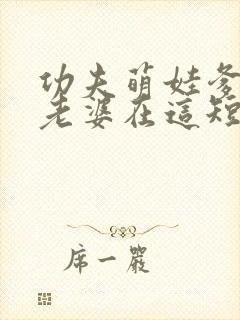 功夫萌娃爹
老婆在這短
席一嚴